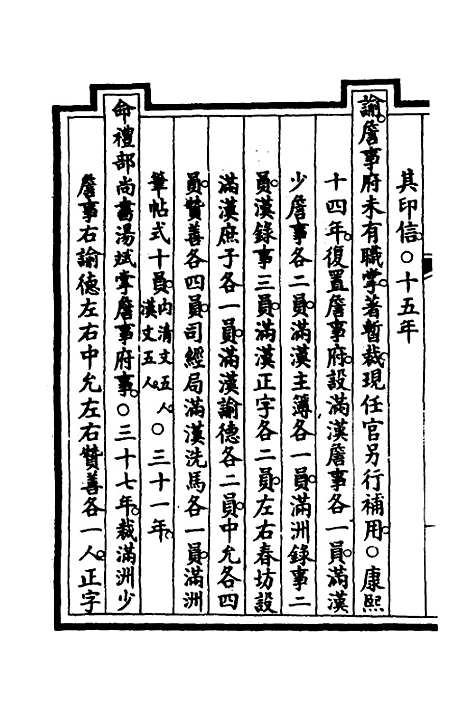 其印信。○十五年
諭。詹事府未有職掌。著暫裁。現任官另行補用。○康熙
十四年。復置詹事府。設滿漢詹事各一員。滿漢
少詹事各二員。滿漢主簿各一員。滿洲錄事二
員。漢錄事三員。滿漢正字各二員。左右春坊設
滿漢庶子各一員。滿漢諭德各二員。中允各四
員。贊善各四員。司經局滿漢洗馬各一員。滿洲
筆帖式十員。內清文五人。漢文五人。○三十一年。
命禮部尚書湯斌掌詹事府事。○三十七年。裁滿洲少
詹事右諭德左右中允左右贊善各一人。正字